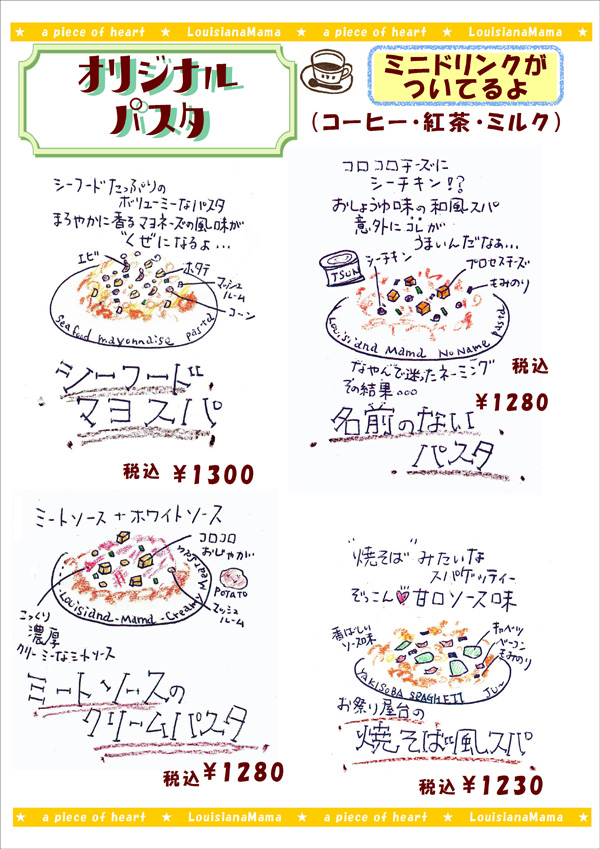 ★ a piece of heart ★ LouisianaMama ★ a piece of heart ★ LouisianaMama ★
オリジナル
パスタ
ミニドリンクが
ついてるよ
(コーヒー・紅茶・ミルク)
シーフードたっぷりの
ボリューミーなパスタ
まろやかに香るマヨネーズの風味が
くせになるよ...
エビ
ホタテ
マッシュ
ルーム
コーン
Seafood mayonnaise pasta
シーフード
マヨスパ
税込 ¥1300
コロコロチーズに
シーチキン!?
おしょうゆ味の和風スパ
意外にコレが
うまいんだなぁ...
TSUN
シーチキン
プロセスチーズ
もみのり
Louisiana Mama No Name Pasta
なやんで迷ったネーミング
その結果...
名前のない
パスタ
税込
¥1280
ミートソース+ホワイトソース
コロコロ
おじゃが
POTATO
マッシュ
ルーム
Louisiana-Mama-Creamy
こっくり
濃厚
クリーミーなミートソース
ミートソースの
クリームパスタ
税込 ¥1280
"焼そば"みたいな
スパゲッティー
ぞっこん♥甘口ソース味
香ばしい
ソース味
キャベツ
ベーコン
もみのり
YAKISOBA SPAGHETTI JU~
お祭り屋台の
焼そば風スパ
税込 ¥1230
★ a piece of heart ★ LouisianaMama ★ a piece of heart ★ LouisianaMama ★